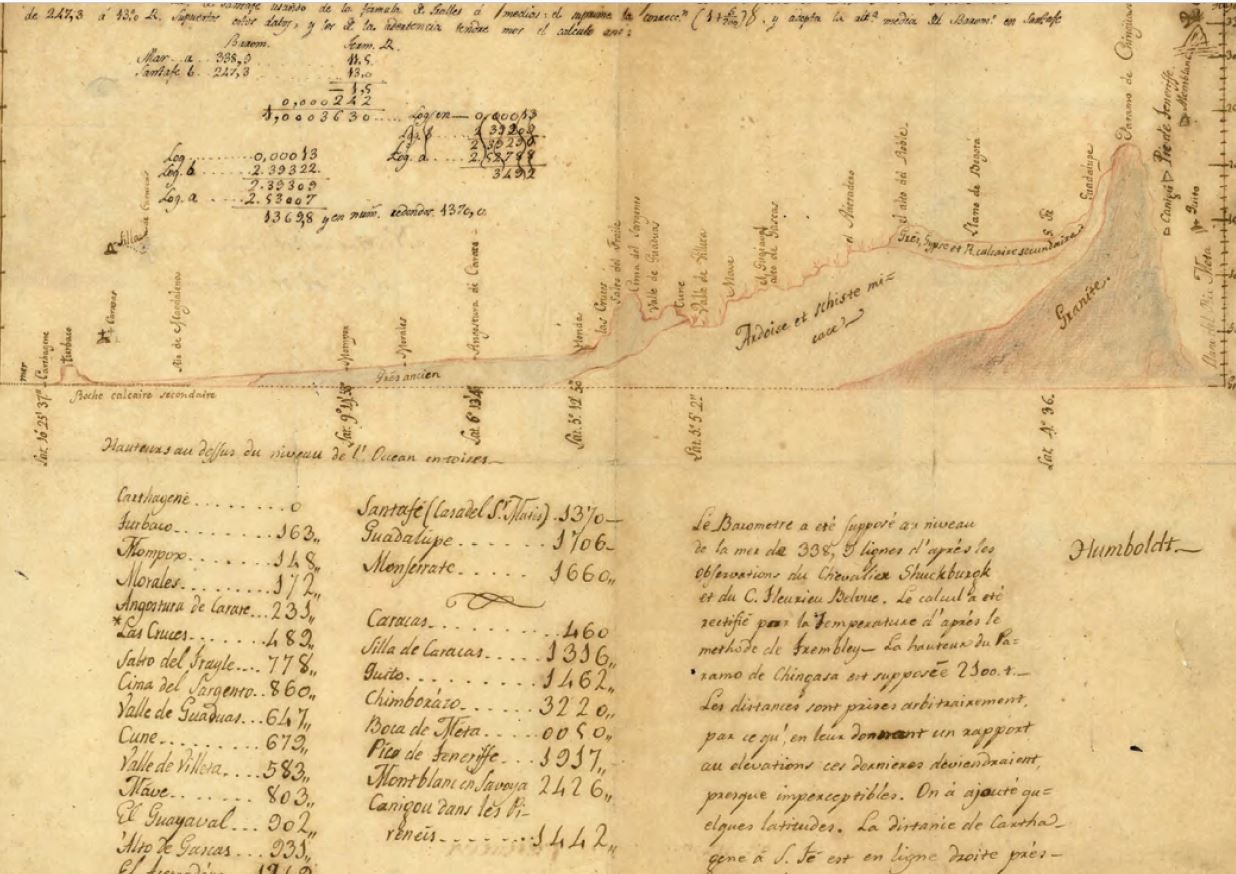 de 247,3 á 13º R. Supuestos estos datos, y los de la advertencia tendre mos el cálculo ans:
Barom. Term. R.
Mar a 338,9 11,5
Santafe b. 247,3 13,0
= 1,5
0,000242
1,0003630 Log en 0,00013
Log 0,00013 Log. a
Log. b 2.39322.
2.39309
Log. a 2.53007
13698 y en num. redondos. 1370,0
3492
Silla de Caracas
Caracas
mer
Carthagene
Turbaco
Rio de Magdalena
Mompox
Morales
Angostura de Carare
Honda
las Cruces
Salto del Fraile
Cima del Sargento
Valle de Guaduas
Cune
Valle de Villeta
Mave
el Guayaval
alto de Gascas
el Aserradero
el alto del Roble.
Llano de Bogotá
S. Fe
Guadalupe
Paramo de Chingasa
Pic de Teneriffe
Montblanc
Canigú
Quito
Llano del Rio Meta
Grés, Gypse et R. calcaire secundaire
Ardoise et schiste mi=
cacé
Granite.
Grés ancien
Roche calcaire secondaire
Lat. 10º 25' 37"
Lat. 9º 14'
Lat. 6º 13'
Lat. 5º 12'
Lat. 5º 5' 2".
Lat. 4º 36.
Hauteurs au dessus du niveau de l'Ocean en toises
Carthagene . . . . . . . . 0
Turbaco . . . . . . . 163,,
Mompox . . . . . . 148,,
Morales . . . . . . 172,,
Angostura de Carare . . . 231,,
*Las Cruces . . . . . . . 482,,
Salto del Frayle . . . . 778,,
Cima del Sargento . . 860,,
Valle de Guaduas . . . 647,,
Cune . . . . . . . . . 679,,
Valle de Villeta . . . 583,,
Mave . . . . . . . . 803,,
El Guayaval . . . 902,,
Alto de Gascas . . . 931,,
Santafé (Casa del Sr. Mutis) . 1370
Guadalupe . . . . . . 1706
Monserrate . . . . . 1660,,
Caracas . . . . . . . . 460
Silla de Caracas . . . . . . 1316,,
Quito . . . . . . . . . 1462,,
Chimborazo . . . . . . 3220,,
Boca de Meta . . . . . 0050,,
Pico de Teneriffe . . . 1917,,
Montblanc en Savoya 2426,,
Canigou dans les Pi-
reneis . . . . . . . . 1442,,
Le Barometre a eté supposé au niveau
de la mer de 338, 9 lignes d'après les
observations du Chevalier Shuckburgk
et du C. Fleurieu Belvue. Le calcul a eté
rectifié par la Temperature d'après le
methode de Trembley— La hauteur du Pa=
ramo de Chingasa est supposée 2100. t.—
Les distances sont prises arbitrairement,
par ce qu'en leur donnant un rapport
au elevations ces dernieres deviendraient,
presque imperceptibles. On à ajouté qu=
elques latitudes. La distanie de Cartha
gene à S. Fé est en ligne droite prés—
Humboldt.